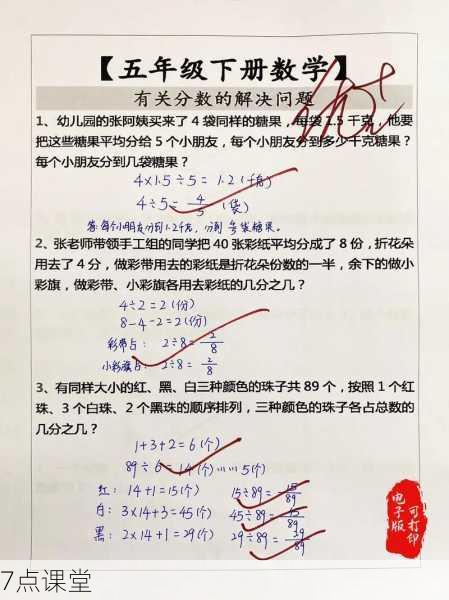 【五年级下册数学】
有关分数的解决问题
1、幼儿园的张阿姨买来了4袋同样的糖果，每袋1.5千克，他要
把这些糖果平均分给5个小朋友，每个小朋友分到多少千克糖果？
每个小朋友分到几袋糖果？
4×1.5÷5=1.2(千克)
4÷5=4/5(袋)
答:每个小朋友分到1.2千克，分到4/5袋糖果。
2、张老师带领手工组的同学把40张彩纸平均分成了8份，折花朵
用去了4分，做彩带用去的彩纸是折花朵份数的一半，余下的做小
彩旗，做彩带、小彩旗各用去彩纸的几分之几？
4÷2=2(份)
8-4-2=2(份)
彩带占：2÷8=2/8
小彩旗占：2÷8=2/8
3、有同样大小的红、黑、白三种颜色的珠子共89个，按照1个红
珠、3个白珠、2个黑珠的顺序排列，三种颜色的珠子各占总数的
几分之几？
1+3+2=6(个)
89÷6=14(个)……5(个)
红：14+1=15(个) 15÷89=15/89
白：3×14+3=45(个) 45÷89=45/89
黑：2×14+1=29(个) 29÷89=29/89
电子版
可打印
7点课堂